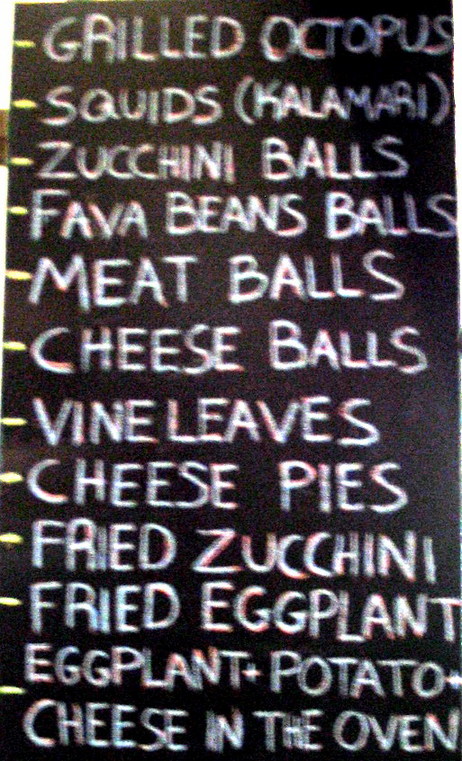 - GRILLED OCTOPUS
- SQUIDS (KALAMARI)
- ZUCCHINI BALLS
- FAVA BEANS BALLS
- MEAT BALLS
- CHEESE BALLS
- VINE LEAVES
- CHEESE PIES
- FRIED ZUCCHINI
- FRIED EGGPLANT
EGGPLANT+ POTATO+
- CHEESE IN THE OVEN